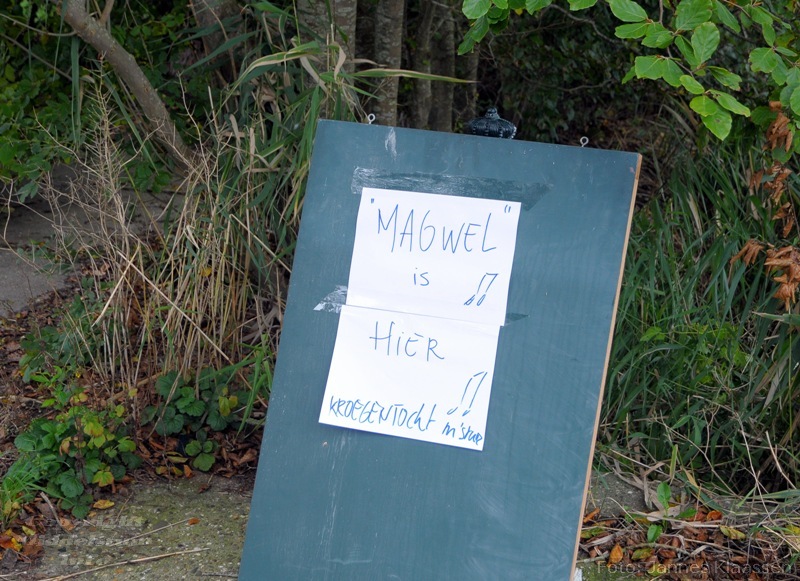 "MAGWEL"
is !!
HiER
!!
KROEGENTOCht
Foto: Jannes Klaassen